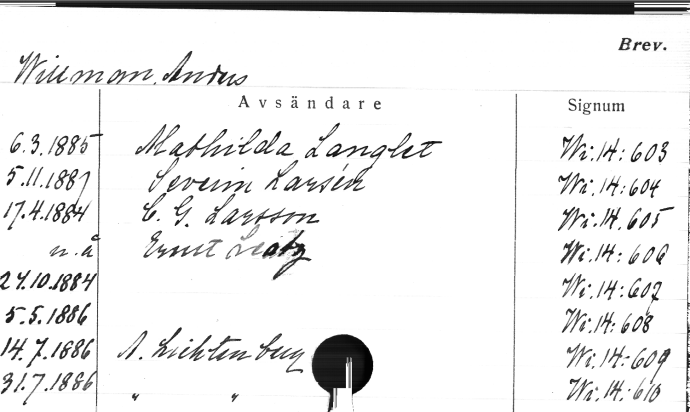 Brev.
Willman, Anders
Avsändare Signum
6.3.1885 Mathilda Langlet Wi.14:603
5.11.1887 Severin Larsén Wi.14:604
17.4.1884 C. G. Larsson Wi.14.605
n.å Ernst Wi.14:606
27.10.1884 Wi.14:607
5.5.1886 Wi.14:608
14.7.1886 A. Lichtenberg Wi.14:609
31.7.1886 " " Wi.14:610